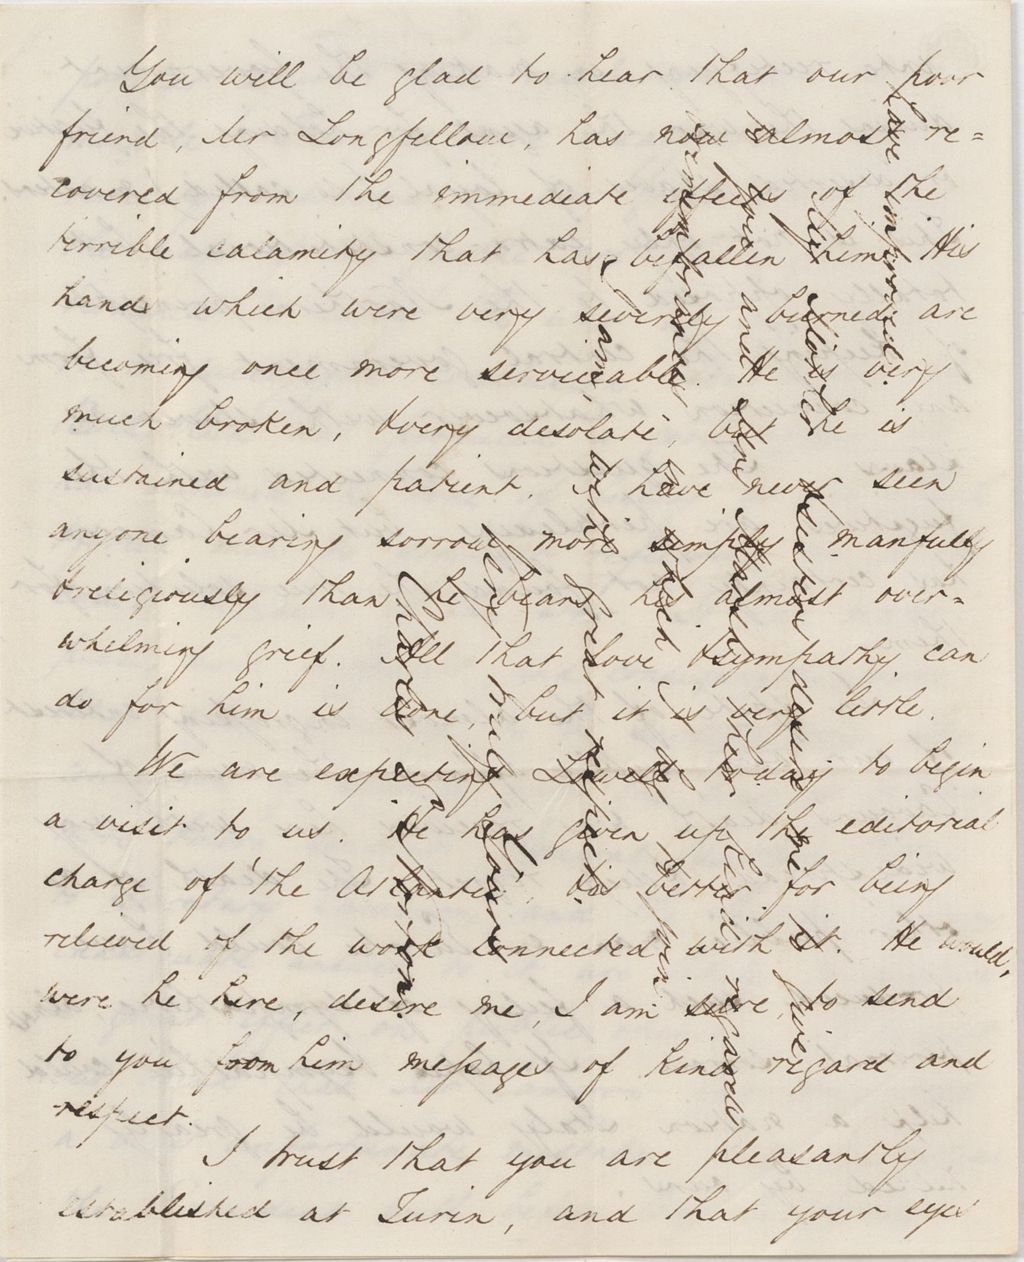 You will be glad to hear that our poor
friend, Mr Longfellow, has now almost re=
covered from the immediate effects of the
terrible calamity that has befallen him. His
hands which were very severely burned are
becoming once more serviceable. He is very
much broken, & very desolate, but he is
sustained and patient. I have never seen
anyone bearing sorrow more simply, manfully
& religiously than he bears his almost over=
whelming grief. All that love & sympathy can
do for him is done, but it is very little.
We are expecting Lowell today to begin
a visit to us. He has given up the editorial
charge of 'the Atlantic', & is better for being
relieved of the work connected with it. He would,
were he here, desire me, I am sure, to send
to you from him messages of kind regard and
respect.
I trust that you are pleasantly
established at Turin, and that your eyes
have improved.
My Mother & sisters desire me to give
to you and Mrs Marsh their kind regards
& remembrances, in which I beg to join.
I am, with great respect
Very truly Yours
Charles E. Norton.